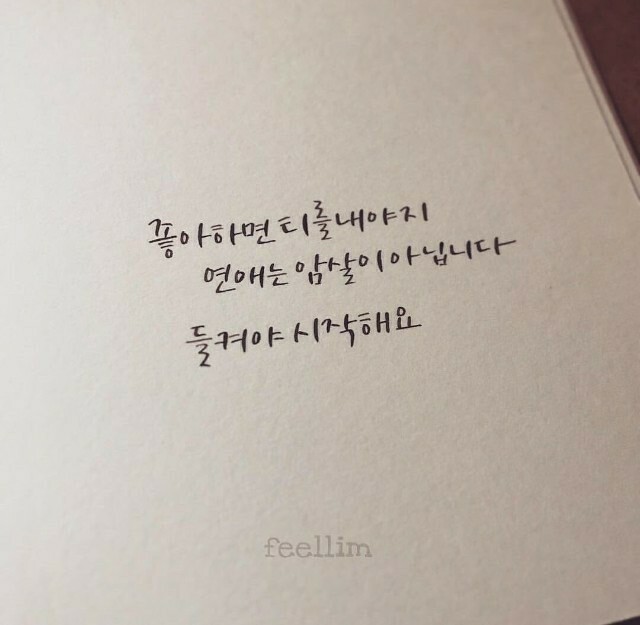 좋아하면 티를 내야지
연애는 암살이 아닙니다
들켜야 시작해요
feellim